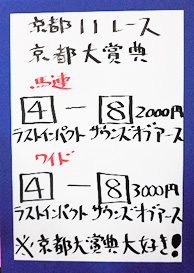 京都11レース
京都大賞典
馬連
4-8 2000円
ラストインパクト サウンズオブアース
ワイド
4-8 3000円
ラストインパクト サウンズオブアース
※京都大賞典大好き!